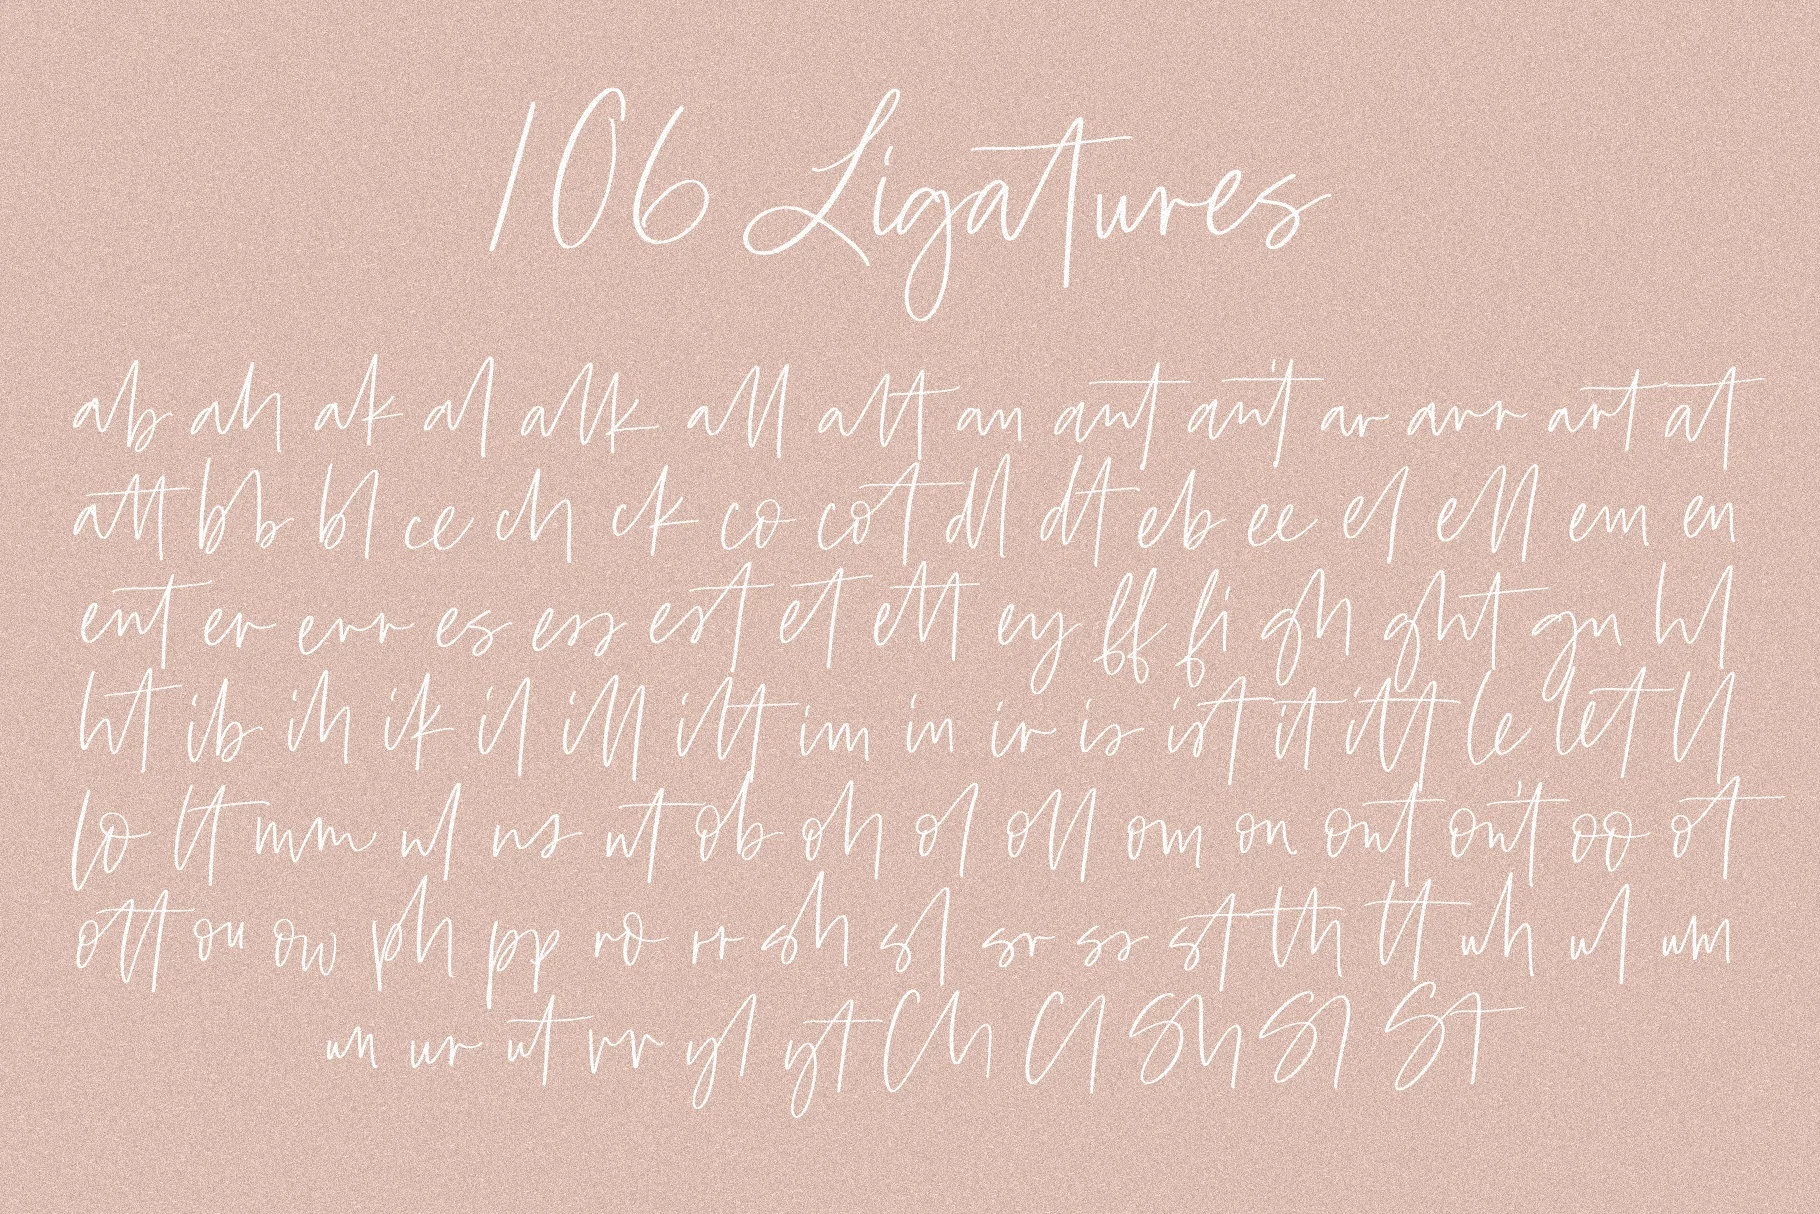 106 Ligatures
ab ah ak al alk all alt an ant an't ar arr art at
att bb bl ce ch ck co cot dl dt eb ee el ell em en
ent er err es ess est et ett ey ff fi gh ght gn hl
ht ib ih ik il ill ilt im in ir is ist it itt le let ll
lo lt mm nl ns nt ob oh ol oll om on ont on't oo ot
ott ou ow ph pp ro rr sh sl sr ss st th tt uh ul um
un ur ut vr yl yt Ch Cl Sh Sl St